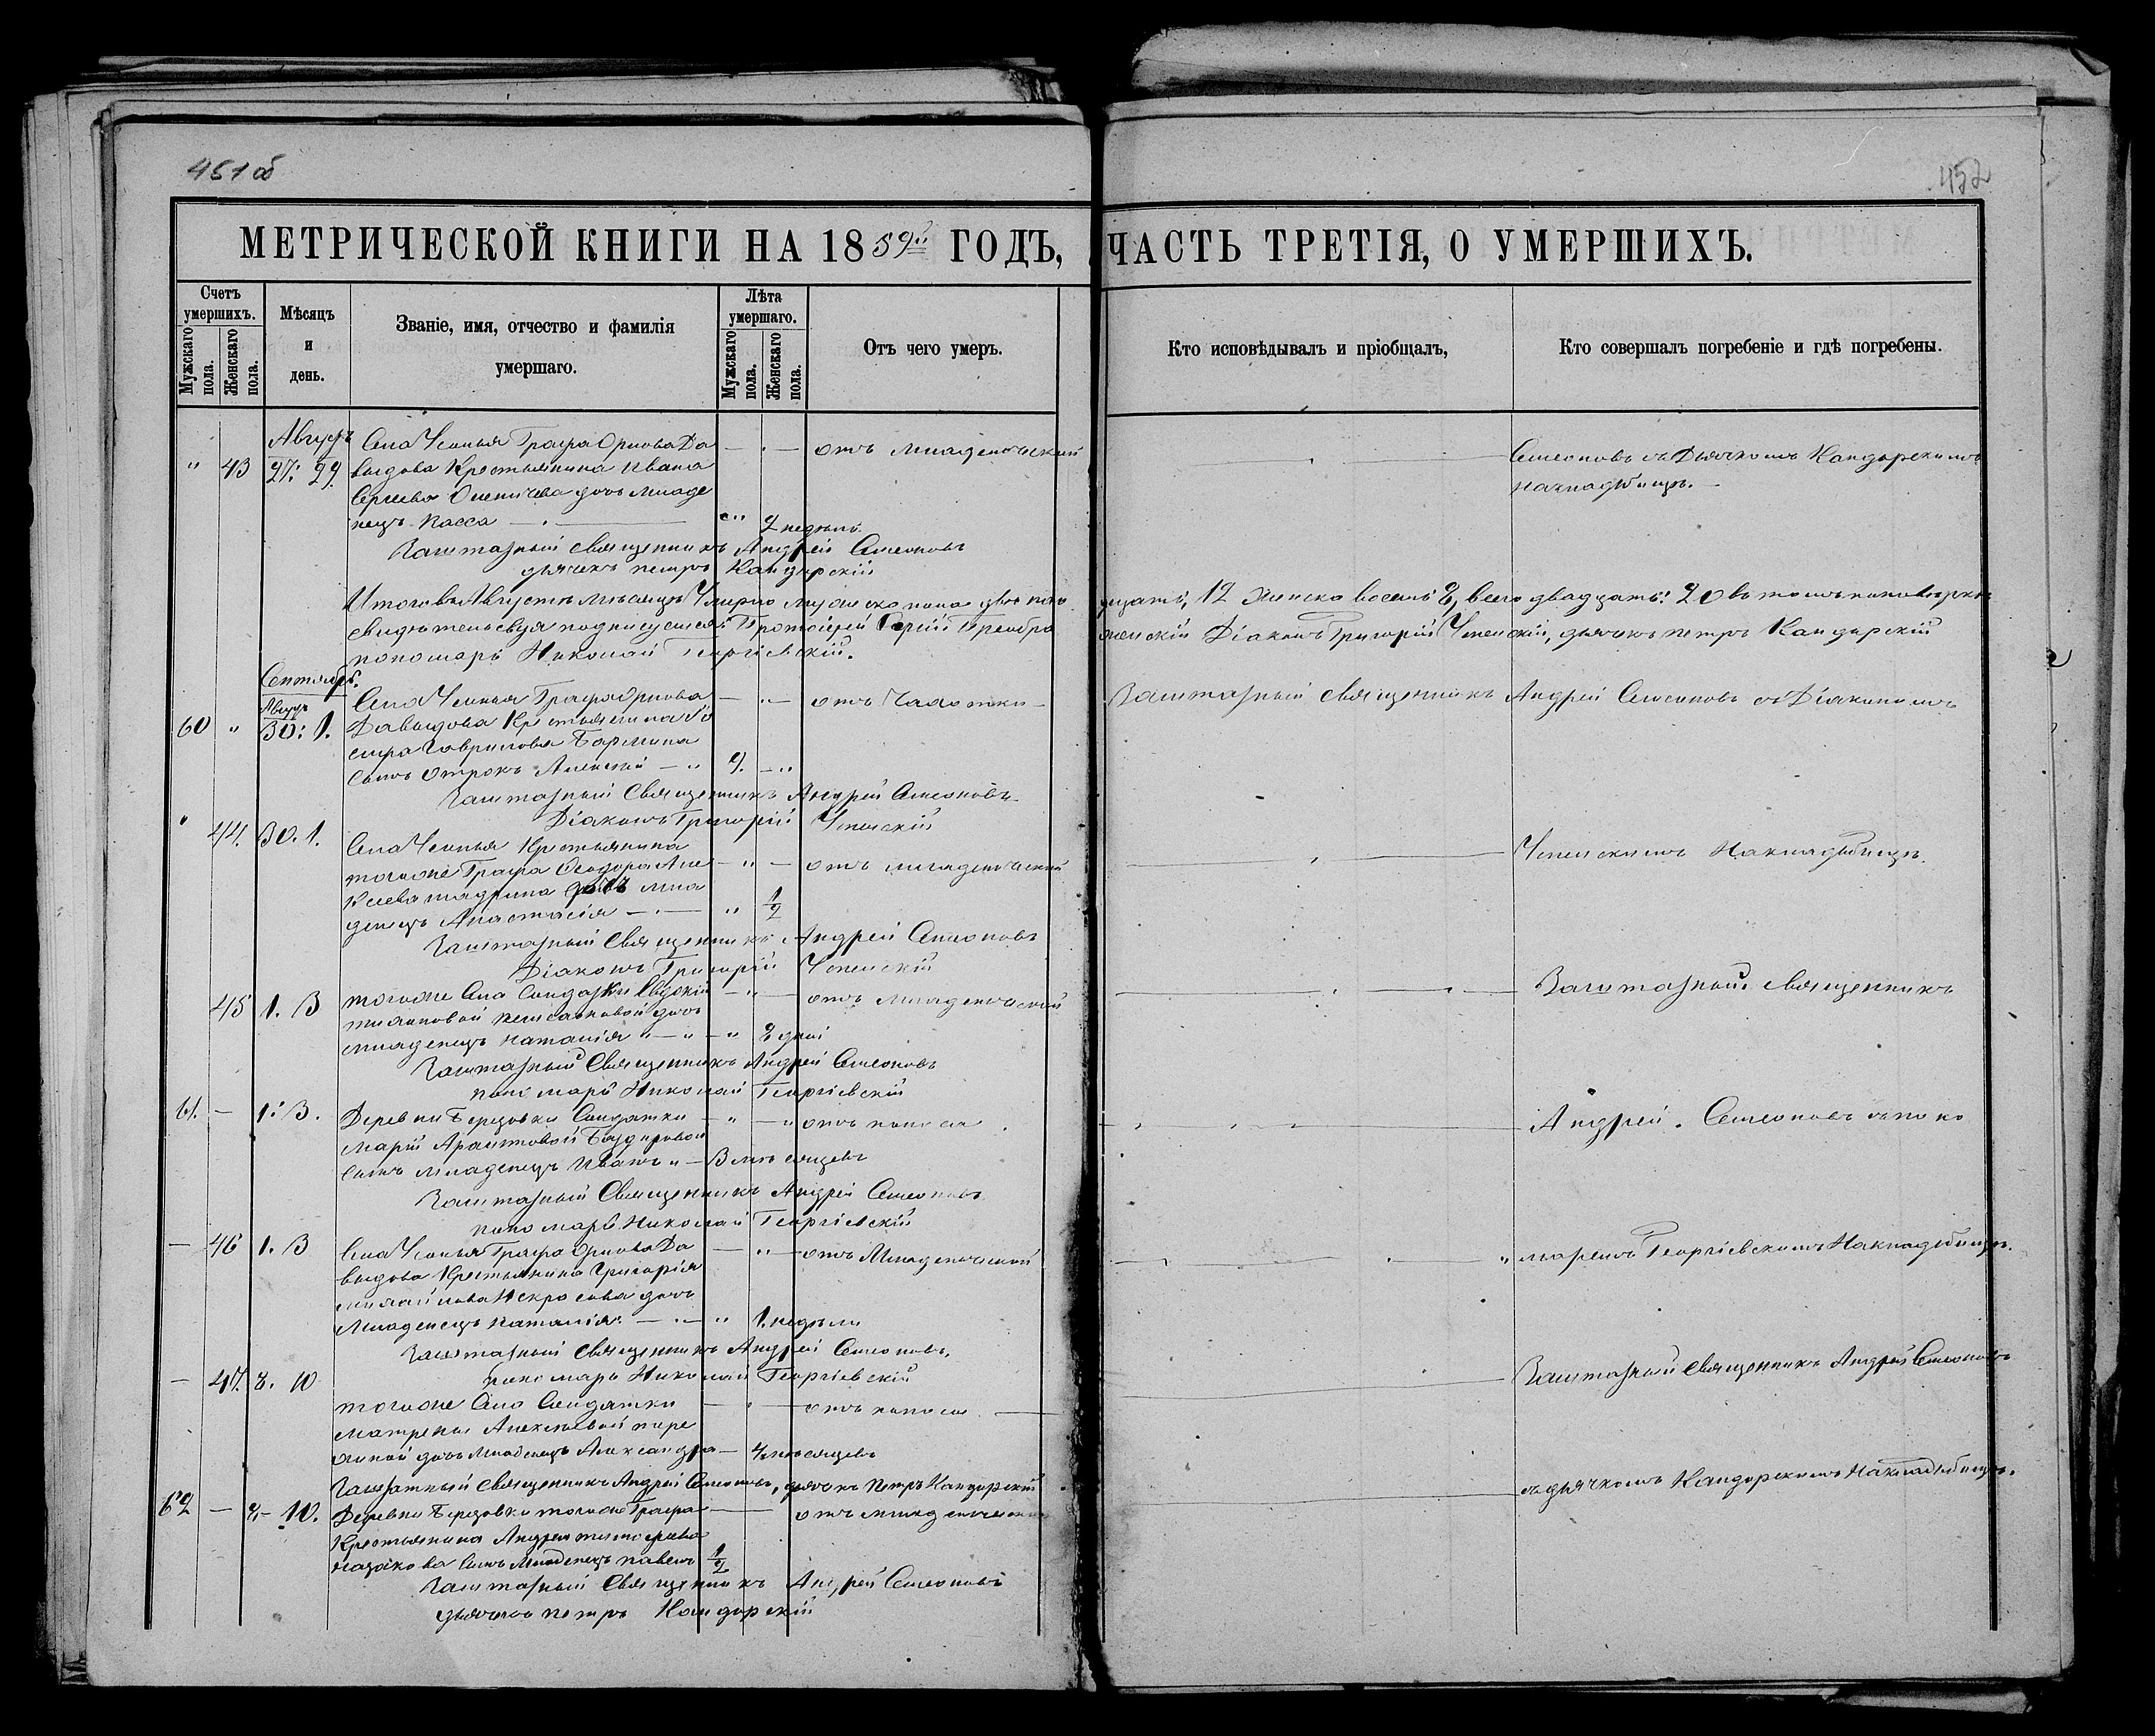 451 об
452
МЕТРИЧЕСКОЙ КНИГИ НА 1859й ГОДЪ, ЧАСТЬ ТРЕТІЯ, О УМЕРШИХЪ.
Счетъ умершихъ.
Мужскаго пола.
Женскаго пола.
Мѣсяцъ и день.
Званіе, имя, отчество и фамилія умершаго.
Лѣта умершаго.
Мужскаго пола.
Женскаго пола.
Отъ чего умеръ.
Кто исповѣдывалъ и пріобщалъ,
Кто совершалъ погребеніе и гдѣ погребены.
Августъ
" 43 27. 29.
Села Усолья Графа Орлова Да
выдова Крестьянина Ивана
Сергеева дочь младе
нецъ
2 недѣль
отъ младенческой
Семеоновъ съ Дьячкомъ Кандорскимъ
накладбищѣ.
Заштатный священникъ Андрей Семеоновъ
дьячекъ петръ Кандорскій
Итого въ Августѣ мѣсяцѣ Умерло мужеска пола двѣ на
дцать, 12 Женска восемь 8, всего двадцать: 20 въ томъ
свидѣтельсвуя подписуемся: Протоіерей Преобра
женскій Діаконъ Григорій Успенскій, дьячекъ петръ Кандорскій
пономарь Николай Георгіевскій.
Сентябрь.
Авгус
60 " 30. 1.
Села Усолья Графа Орлова
Давыдова Крестьянина
Гаврилова
Сынъ отрокъ Алексѣй
9.
отъ Чахотки
Заштатный священникъ Андрей Семеоновъ съ Діакономъ
Заштатный Священникъ Андрей Семеоновъ
Діаконъ Григорій Успенскій
" 44. 30. 1.
Села Усолья Крестьянина
тогоже Графа Феодора Але
дочь мла
денецъ Анастасія
1/2
отъ младенческой
Успенскимъ Накладбищѣ.
Заштатный Священникъ Андрей Семеоновъ
Діаконъ Григорій Успенскій
45 1. 3
тогоже Села Солдатки
дочь
младенецъ Наталія
2 дней
отъ младенческой
Заштатный священникъ
Заштатный Священникъ Андрей Семеоновъ
пономарь Николай Георгіевскій
61. 1. 3.
Деревни Березовки Солдатки
Маріи
Сынъ младенецъ Иванъ 3 мѣсяцевъ
отъ поноса
Андрей Семеоновъ съ поно
Заштатный Священникъ Андрей Семеоновъ
пономарь Николай Георгіевскій
46 1. 3
Села Усолья Графа Орлова Да
выдова Крестьянина Григорія
дочь
Младенецъ Наталія
1. недѣли
отъ Младенческой
маремъ Георгіевскимъ Накладбищѣ.
Заштатный священникъ Андрей Семеоновъ,
пономарь Николай Георгіевскій
47. 8. 10
тогоже Села Солдатки
матрены Алексѣевой
дочь младенецъ Александра 4 мѣсяцевъ
отъ поноса
Заштатный священникъ Андрей Семеоновъ
Заштатный священникъ Андрей Семеоновъ, дьячекъ Петръ Кандорскій
62 8. 10.
Деревни Березовки тогоже Графа
Крестьянина Андрея
Казакова Сынъ младенецъ павелъ
1/2
отъ младенческой
съ дьячкомъ Кандорскимъ Накладбищѣ.
Заштатный Священникъ Андрей Семеоновъ
дьячекъ петръ Кандорскій